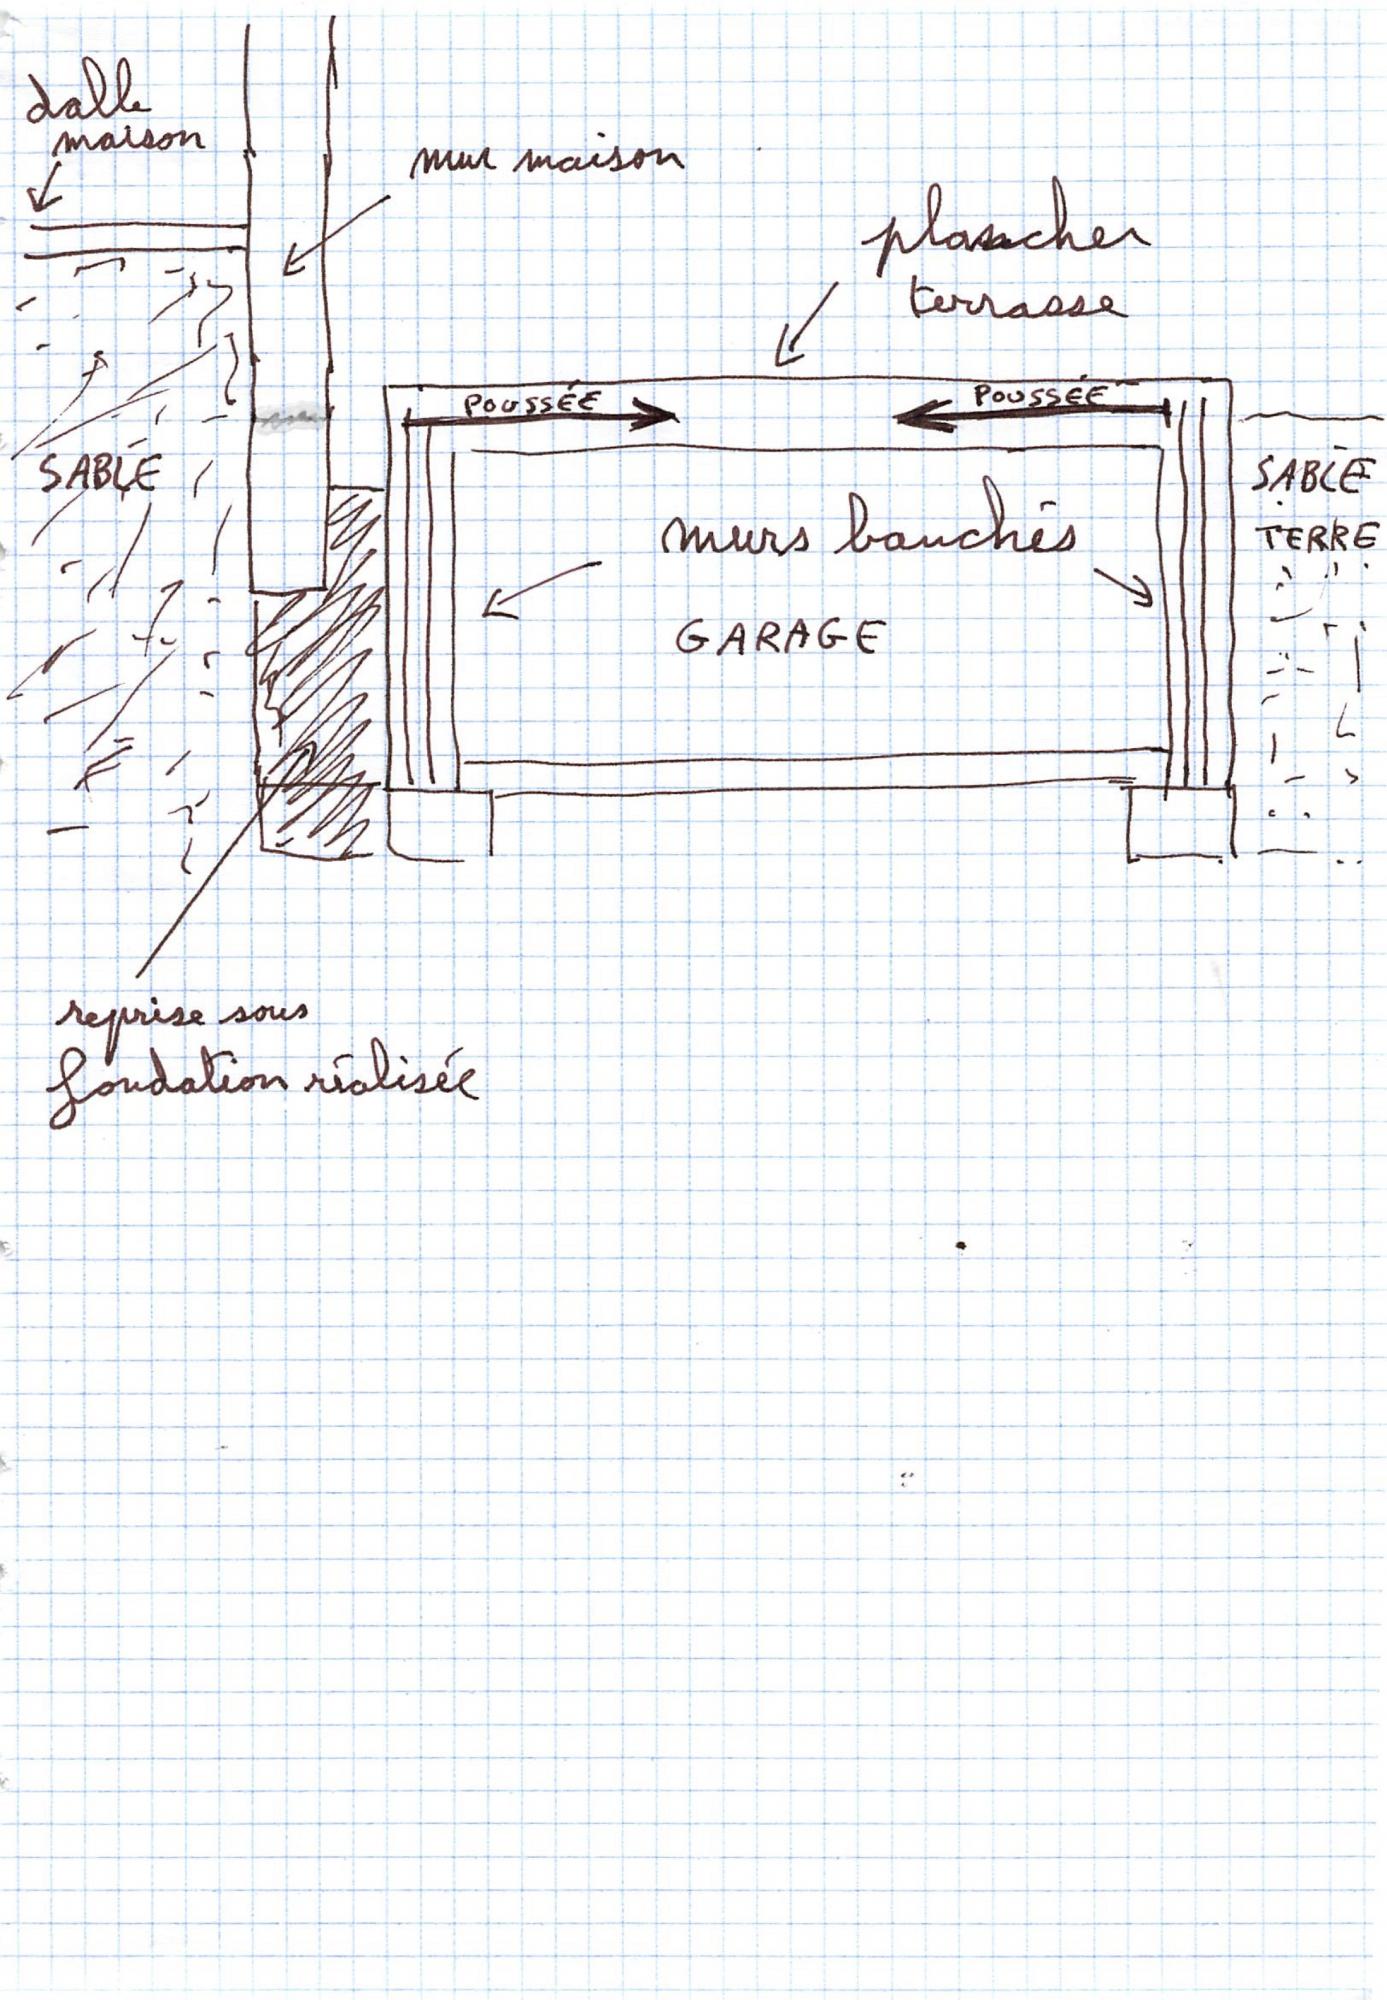 dalle
maison
mur maison
plancher
terrasse
POUSSÉE
POUSSÉE
SABLE
SABLE
TERRE
murs banchés
GARAGE
reprise sous
fondation réalisée